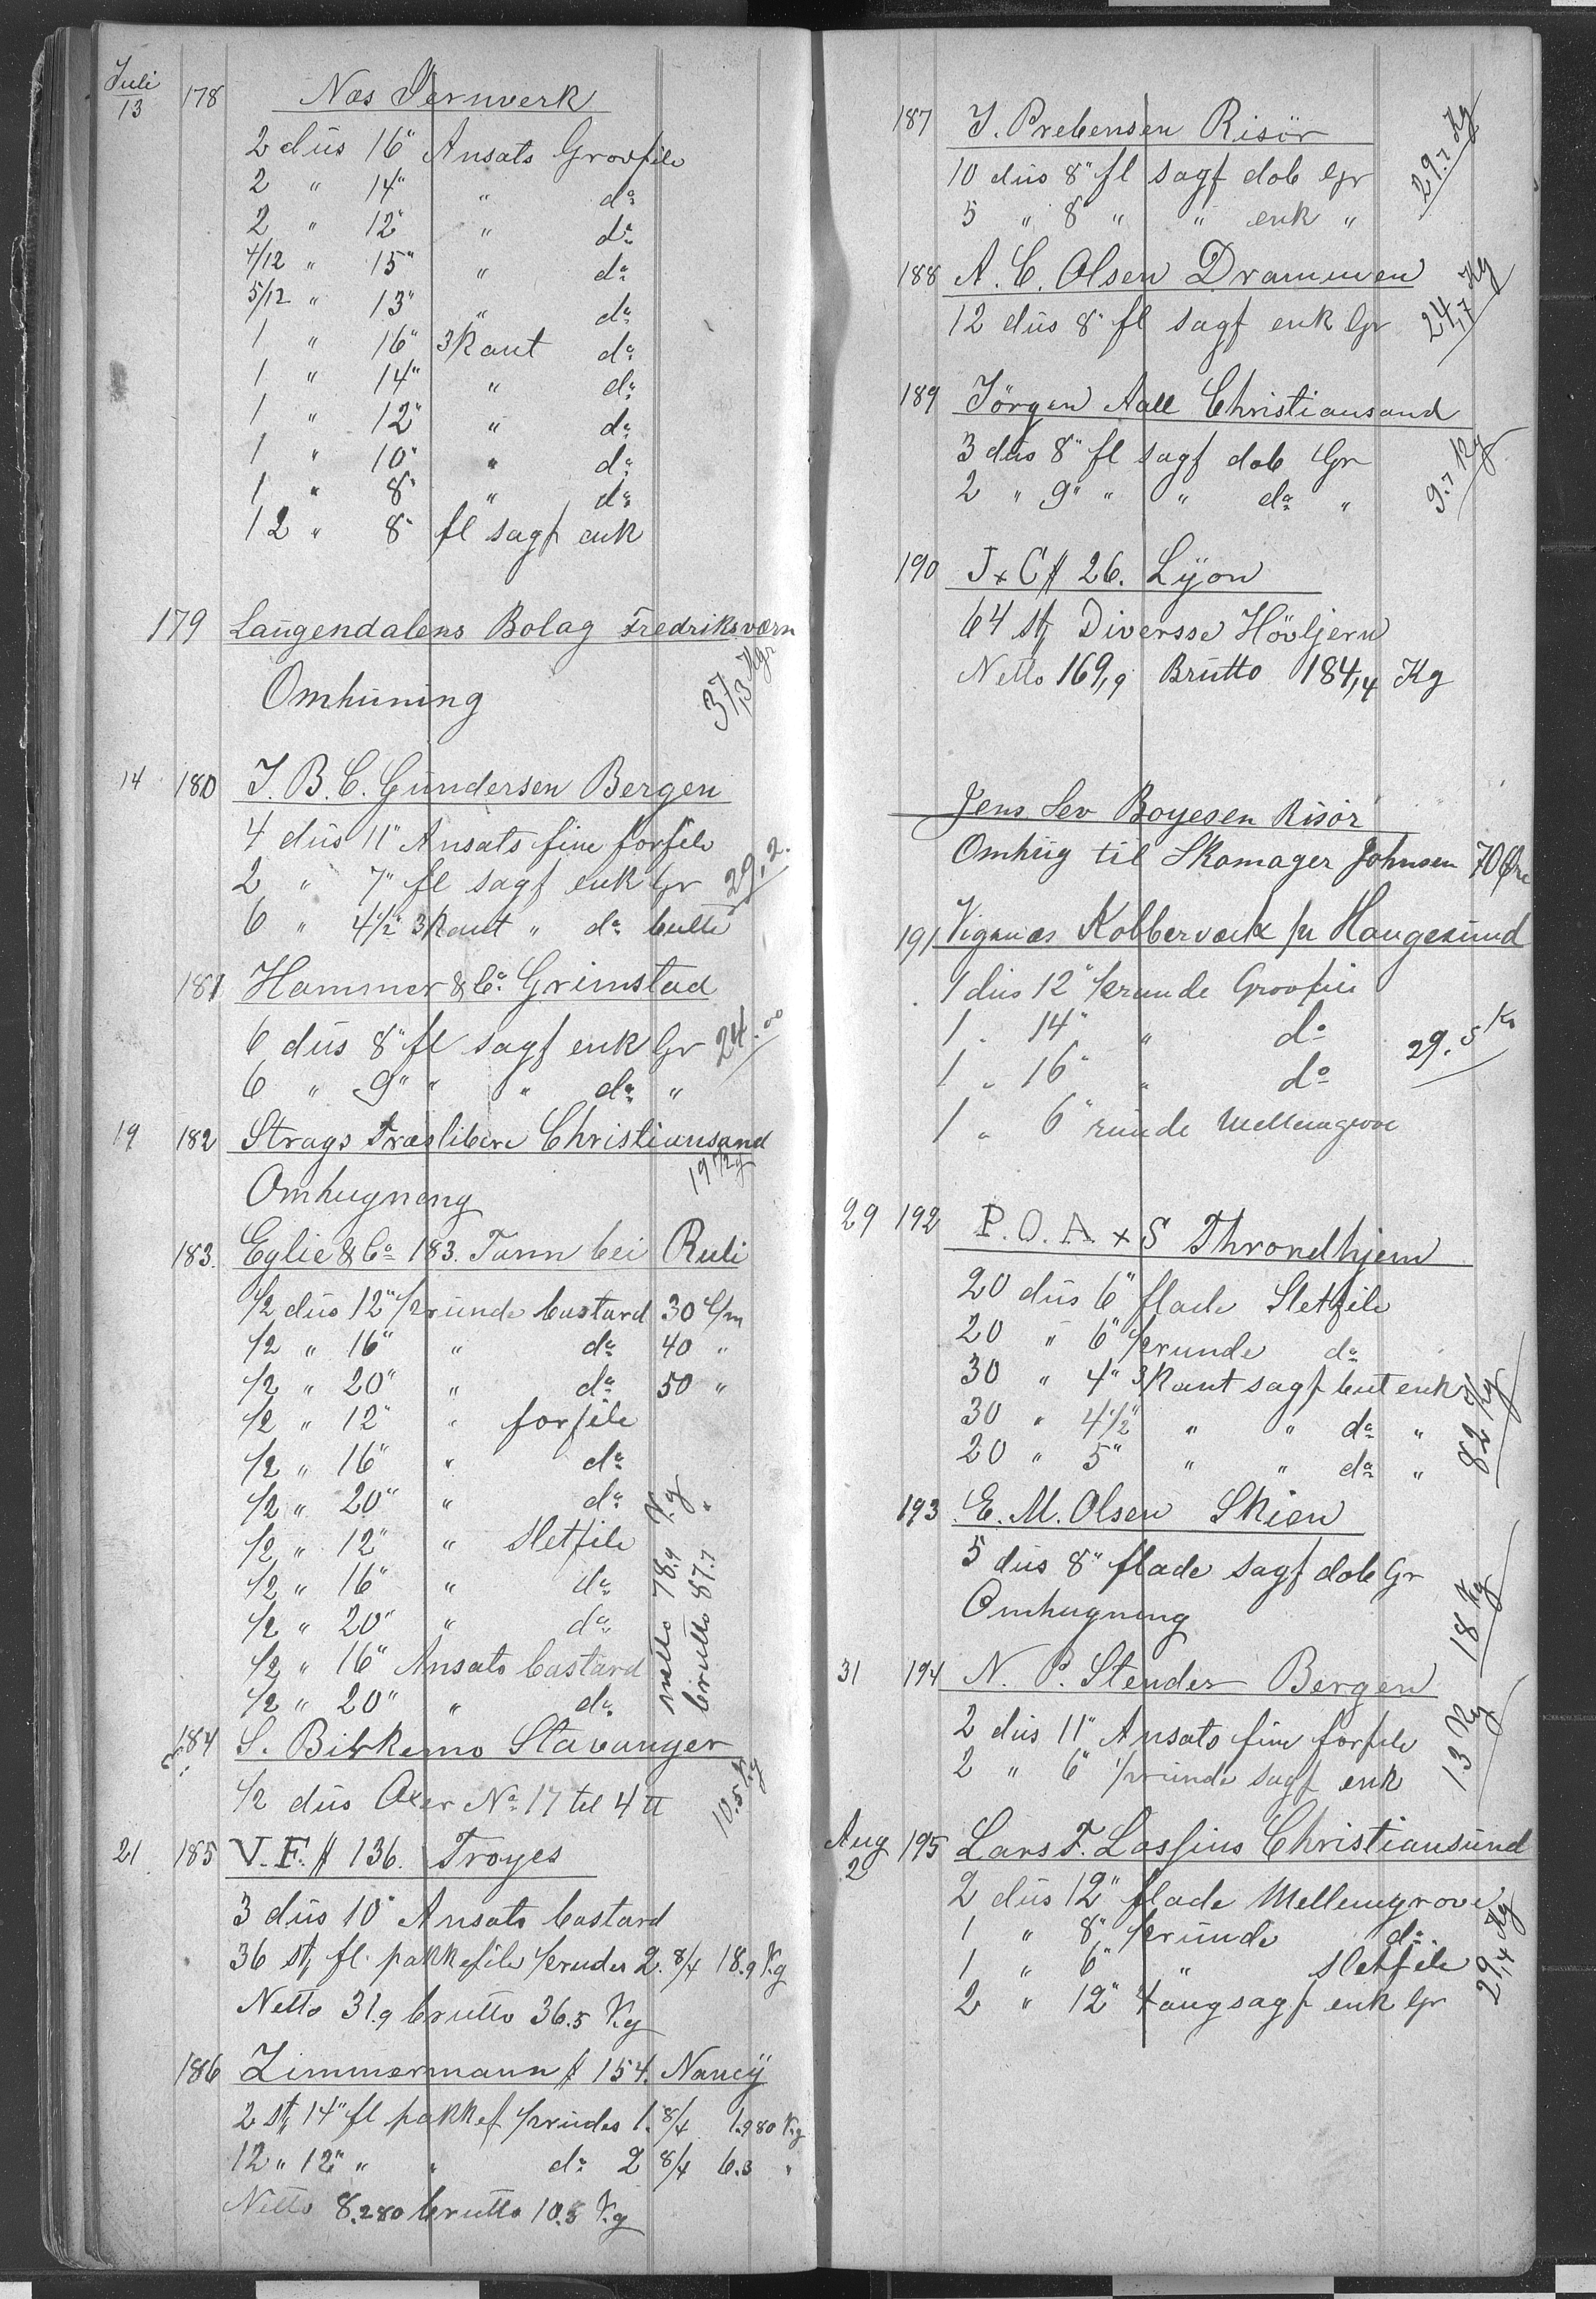 Juli
13 178 Næs Jernverk
2 dus 16" Ansats Grovfile
2 " 14" " do
2 " 12" " do
4/12 " 15" " do
5/12 " 13" " do
1 " 16" 3kant do
1 " 14" " do
1 " 12" " do
1 " 10" " do
1 " 8" " do
12 " 8" fl sagf enk
179 Laugendalens Bolag Fredriksværn
Omhuning 37,3 Kgr
14 180 J. B. C. Gundersen Bergen
4 dus 11" Ansats fine forfile
2 " 7" fl sagf enk Gr 29,2.
6 " 4 1/2" 3kant " do butte
181 Hammer & Co. Grimstad
6 dus 8" fl sagf enk Gr 24.00
6 " 9" " " do "
19 182 Strags Træsliberi Christiansand
Omhugneng 19 1/2 g
183. Eglie & Co 183. Tann bei Ruli
1/2 dus 12" 1/2runde bastard 30 C/m
1/2 " 16" " do 40 "
1/2 " 20" " do 50 "
1/2 " 12" " forfile
1/2 " 16" " do
1/2 " 20" " do
1/2 " 12" " Sletfile
1/2 " 16" " do
1/2 " 20" " do
1/2 " 16" Ansats bastard
1/2 " 20" " do
netto 78.9 Kg
brutto 87.7 "
184 S. Birkemo Stavanger
1/2 dus Oxer No 17 til 4 tt 10.5 Kg
21 185 V. F. # 136. Troyes
3 dus 10" Ansats bastard
36 st fl. pakkefile 1/2rudes 2. 8/4 18.9 Kg
Netto 31.9 brutto 36.5 Kg
186 Zimmermann # 154. Nancÿ
2 st 14" fl pakkef 1/2rudes 1. 8/4 1.980 Kg
12 " 12" " " do 2 8/4 6.3 "
Netto 8.280 brutto 10.8 Kg
187 J. Prebensen Risör
10 dus 8" fl sagf dob Gr 29.7 Kg
5 " 8 " " enk "
188 A. C. Olsen Drammen
12 dus 8" fl sagf enk Gr 24,7 Kg
189 Jörgen Aall Christiansand
3 dus 8" fl sagf dob Gr
2 " 9" " " do " 9.7 Kg
190 J x C # 26. Lÿon
64 st Diversse Hövljern
Netto 169,9 Brutto 184,4 Kg
Jens Sev Boyesen Risör
Omhug til Skomager Johnsen 70 Øre
191 Vigsnæs Kobberværk pr Haugesund
1 dus 12" 1/2runde Grovfile
1 " 14" " do
1 " 16" " do 29.5 Ko
1 " 6" runde Mellemgrove
29 192 P. O. A x S Throndhjem
20 dus 6" flade Sletfile
20 " 6" 1/2runde do
30 " 4" 3kant sagf but enk
30 " 4 1/2" " " do "
20 " 5" " " do " 82 Kg
193 E. M. Olsen Skien
5 dus 8" flade sagf dob Gr
Omhugning 18 Kg
31 194 N. P. Stender Bergen
2 dus 11" Ansats fine forfile
2 " 6" 1/2runde sagf enk 13 Kg
Aug
2 195 Lars F. Lossius Christiansund
2 dus 12" flade Mellemgrove
1 " 8" 1/2runde do
1 " 6" " Sletfile
2 " 12" 4 angsagf enk Gr 29,4 Kg